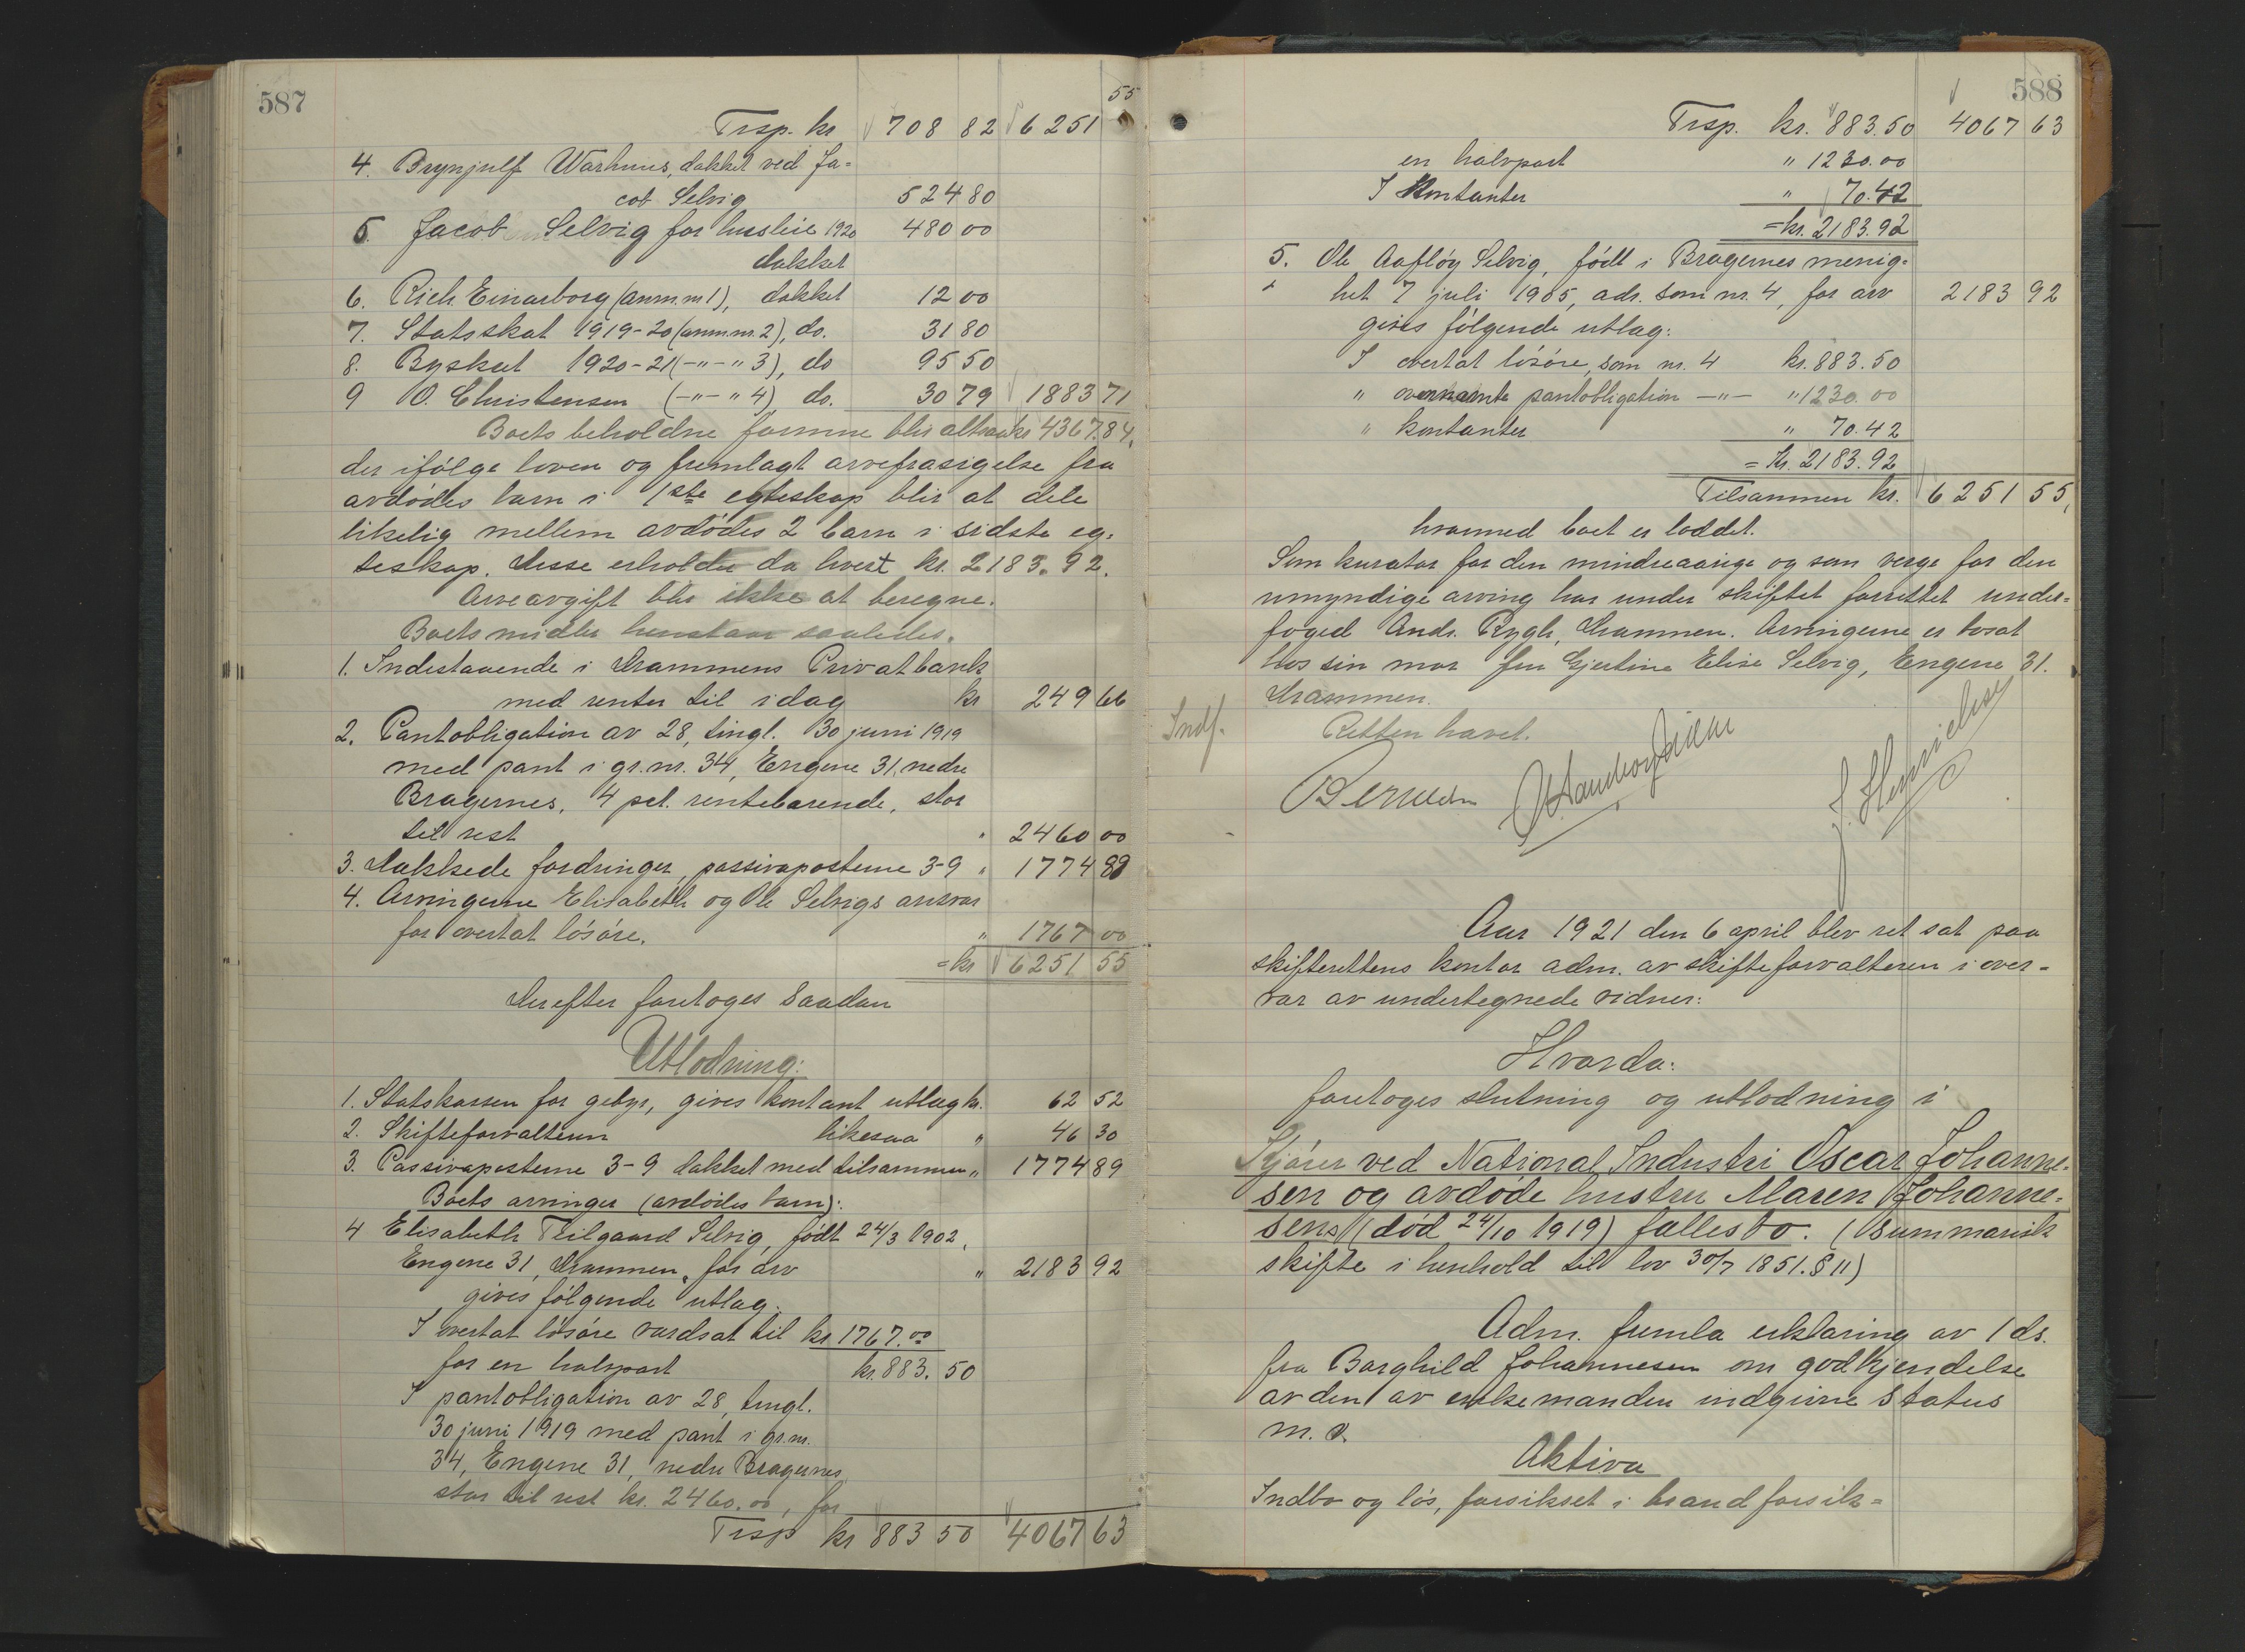 587
55
Trsp. kr 708 82 6251
4. Brynjulf Warhuus, dækket ved Ja=
cob Selvig 524 80
5. Jacob Selvig for husleie 1920 480 00
dækket
6. Rich. Einarborg (anm. nr 1), dækket 12 00
7. Statsskat 1919-20 (anm. nr. 2), do. 31 80
8. Byskat 1920-21 (-"-" 3), do 95 50
9 O. Christensen (-"-" 4), do. 30 79 1883 71
Boets beholdne formue blir altsaa kr 4367.84,
der ifølge loven og fremlagt arvefrasigelse fra
avdødes barn i 1ste egteskap blir at dele
likelig mellem avdødes 2 barn i sidste eg=
teskap. Disse erholder da hvert kr. 2183.92.
Arveavgift blir ikke at beregne.
Boets midler henstaar saaledes.
1. Indestaaende i Drammens Privatbank
med renter til idag kr 249 66
2. Pantobligation av 28, tingl. 30 juni 1919
med pant i gr. nr. 34, Engene 31, nedre
Bragernes, 4 pct. rentebærende, stor
til rest " 2460 00
3. Dækkede fordringer, passivaposterne 3-9 " 1774 89
4. Arvingerne Elisabeth og Ole Selvigs ansvar
for overtat løsøre. " 1767 00
= kr 6251 55
Derefter foretoges saadan
Utlodning:
1. Statskassen for gebyr, gives kontant utlæg kr. 62 52
2. Skifteforvalteren likesaa " 46 30
3. Passivaposterne 3-9 dækket med tilsammen " 1774 89
Boets arvinger (avdødes barn):
4 Elisabeth Teilgaard Selvig, født 24/3 1902,
Engene 31, Drammen, for arv " 2183 92
gives følgende utlæg:
I overtat løsøre værdsat til kr 1767.00
for en halvpart kr. 883.50
I pantobligation av 28, tingl.
30 juni 1919 med pant i gr. nr.
34, Engene 31, nedre Bragernes
stor til rest kr. 2460.00, for
Trsp kr 883 50 4067 63
588
Trsp. kr. 883.50 4067 63
en halvpart " 1230.00
I Kontanter " 70.42
= kr. 2183.92
5. Ole Aafløy Selvig, født i Bragernes menig=
het 7 juli 1905, adr. som nr. 4, for arv 2183 92
gives følgende utlæg:
I overtat løsøre, som nr. 4 kr. 883.50
" overnævnte pantobligation -"- " 1230.00
" kontanter " 70.42
= Kr. 2183.92
Tilsammen kr. 6251 55,
hvormed boet er loddet.
Som kurator for den mindreaarige og som verge for den
umyndige arving har under skiftet forrettet under=
foged Andr. Rygh, Drammen. Arvingerne er bosat
hos sin mor fru Gjertine Elise Selvig, Engene 31.
Drammen.
Indf.
Retten hævet.
Aar 1921 den 6 april blev ret sat paa
skifterettens kontor adm. av skifteforvalteren i over=
vær av undertegnede vidner:
Hvorda:
foretoges slutning og utlodning i
Kjører ved National Industri Oscar Johanne=
sen og avdøde hustru Maren Johanne=
sens (død 24/10 1919) fællesbo. (Summarisk
skifte i henhold til lov 30/7 1851. § 11)
Adm. fremla erklæring av 1 ds.
fra Borghild Johannesen om godkjendelse
av den av enkemanden indgivne status
m. v.
Aktiva
Indbo og løs, forsikret i brandforsik=